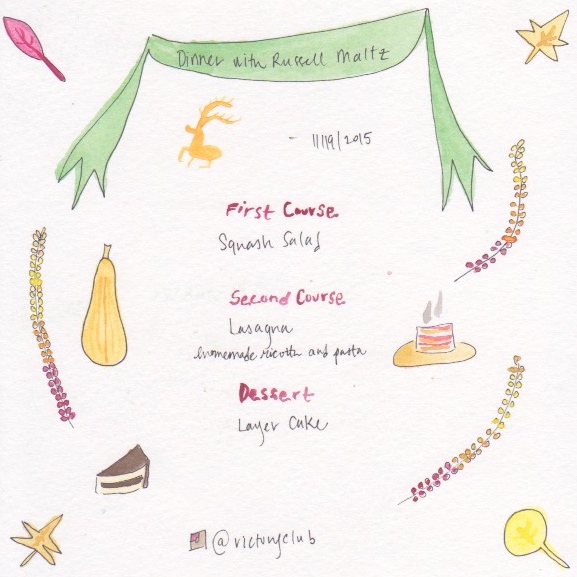 Dinner with Russell Maltz
- 11/19/2015
First Course
Squash Salad
Second Course
Lasagna
homemade ricotta and pasta
Dessert
Layer Cake
@victoryclub